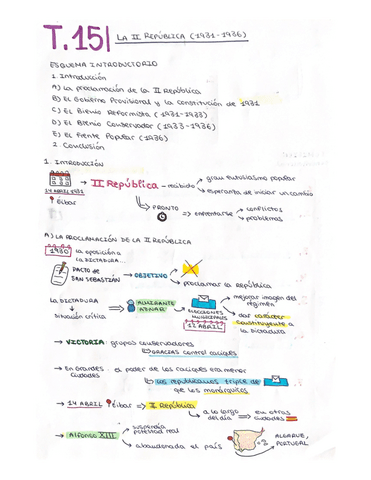 T.15 LA II REPÚBLICA (1931-1936)
ESQUEMA INTRODUCTORIO
1. Introducción
A) La proclamación de la II República
B) El Gobierno Provisional y la Constitución de 1931
C) El Bienio Reformista (1931-1933)
D) El Bienio Conservador (1933-1936)
E) El Frente Popular (1936)
2. Conclusión
1. INTRODUCCIÓN
14 ABRIL 1931
Éibar
II República - recibido
gran entusiasmo popular
esperanza de iniciar un cambio
PRONTO
enfrentarse
conflictos
problemas
A) LA PROCLAMACIÓN DE LA II REPÚBLICA
1930 la oposición a
la DICTADURA...
PACTO de
SAN SEBASTIÁN
OBJETIVO
proclamar la República
la DICTADURA
situación crítica
ALMIRANTE
AZNAR
ELECCIONES
MUNICIPALES
12 ABRIL
mejorar imagen del
régimen
dar carácter
constituyente a
la Dictadura
VICTORIA: grupos conservadores
GRACIAS control caciques
En Grandes
ciudades
el poder de los caciques era menor
los republicanos triple de
que los monárquicos
14 ABRIL Éibar II República
a lo largo
del día
en otras
ciudades
Alfonso XIII
suspendía
potestad real
abandonaba el país
ALGARVE,
PORTUGAL